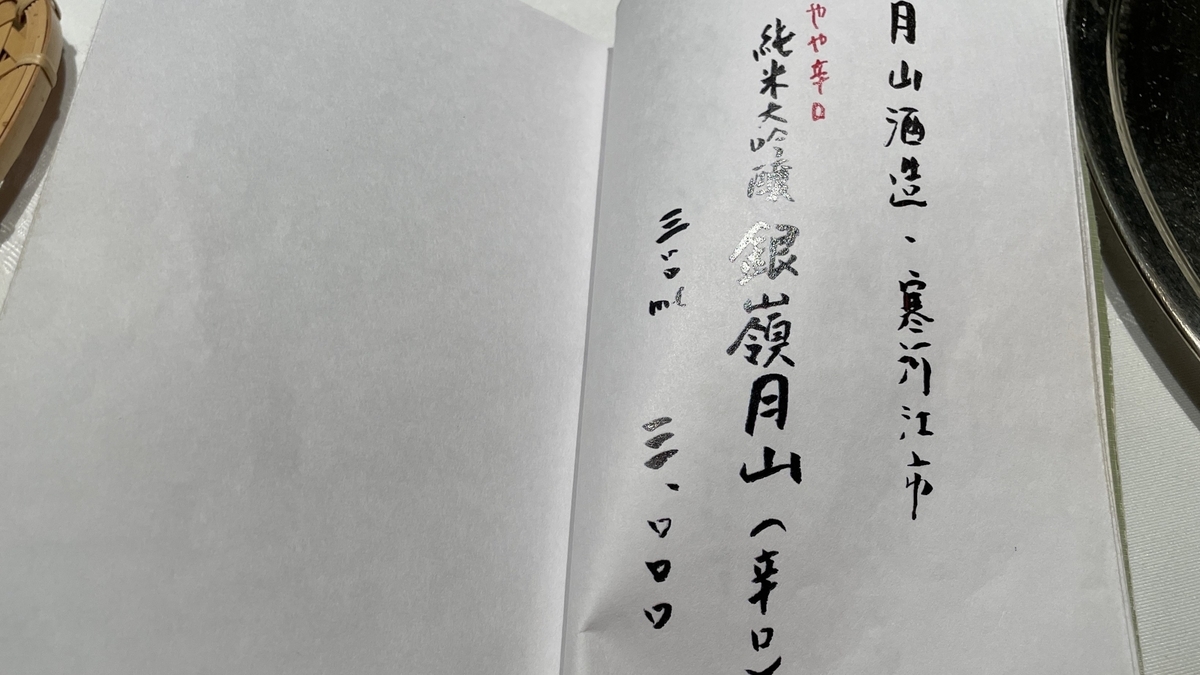 月山酒造・寒河江市
やや辛口
純米大吟醸 銀嶺月山(辛口)
三〇〇ml
三、〇〇〇